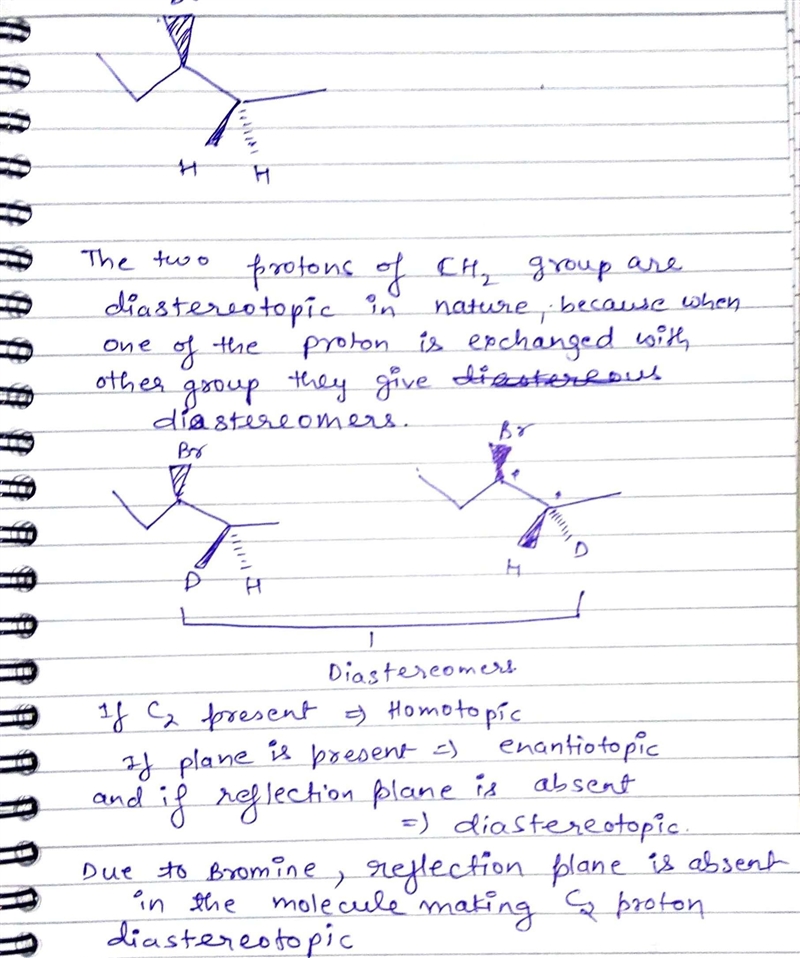 H
H
The two protons of CH₂ group are
diastereotopic in nature, because when
one of the proton is exchanged with
other group they give
diastereomers.
Br
Br
D
H
H
D
Diastereomers
If C₂ present ⇒ Homotopic
If plane is present ⇒ enantiotopic
and if reflection plane is absent
⇒ diastereotopic.
Due to Bromine, reflection plane is absent
in the molecule making C₂ proton
diastereotopic